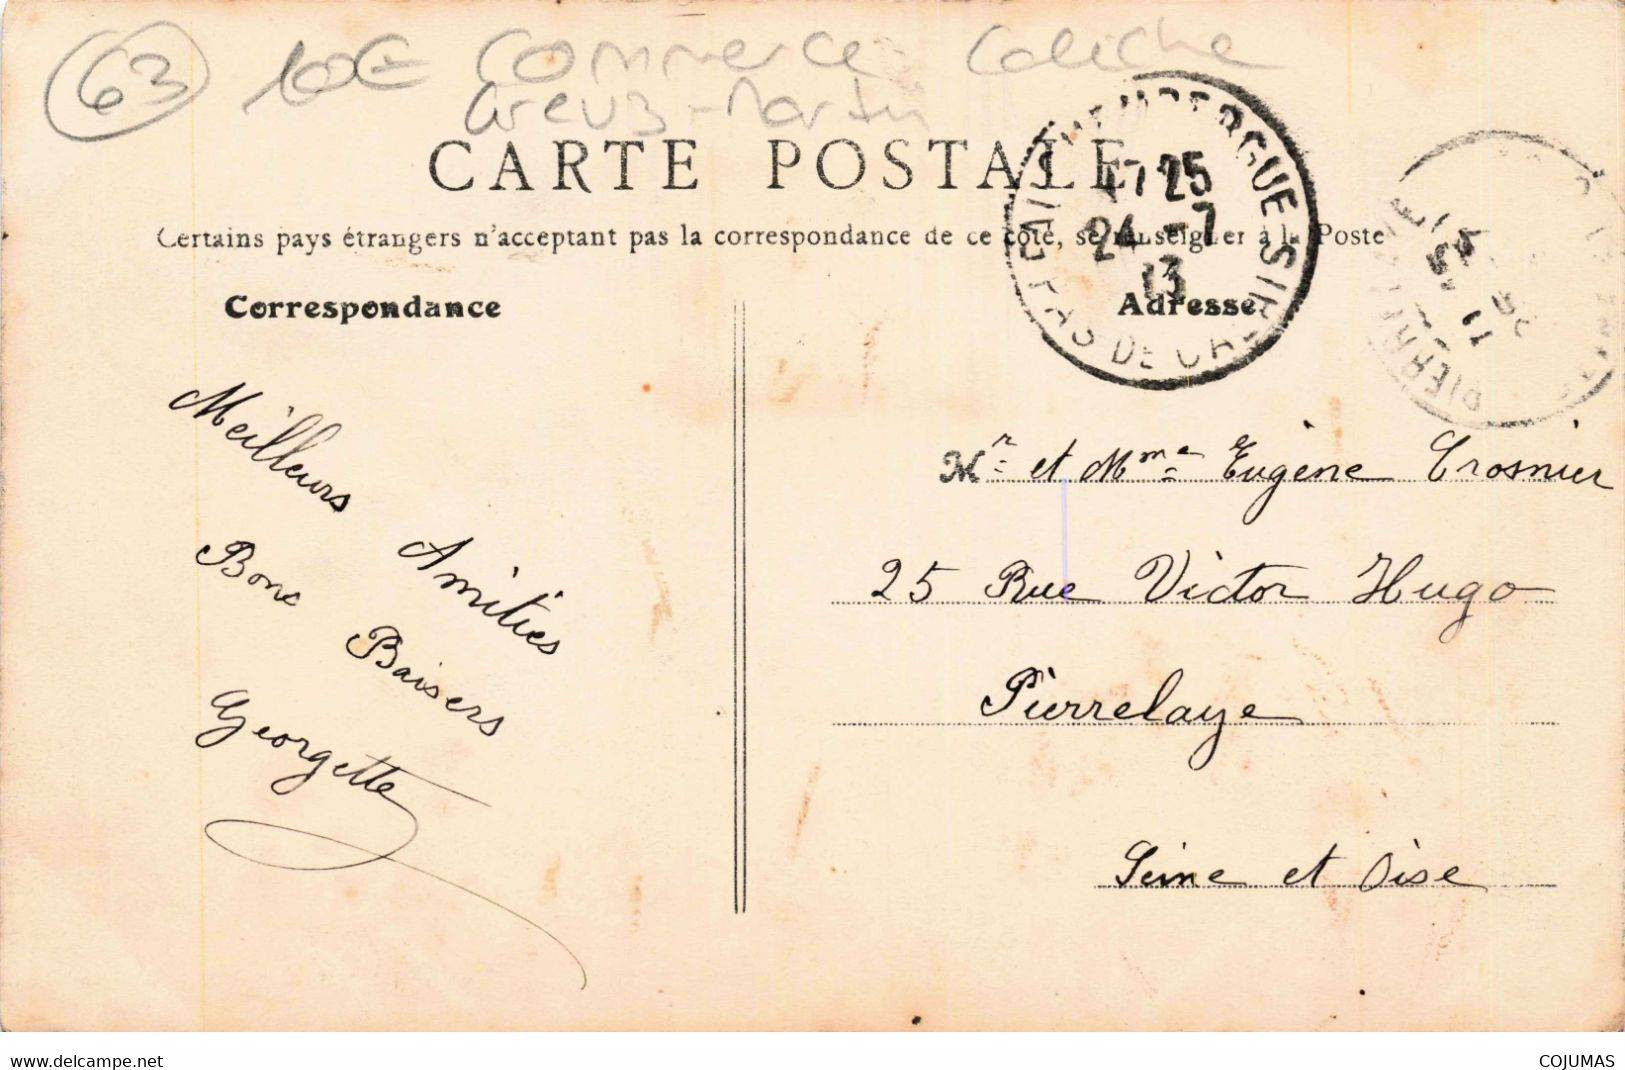 63 10€ Commerce Caleche
Creuz-Martin
CARTE POSTALE
Certains pays étrangers n'acceptant pas la correspondance de ce côté, se renseigner à la Poste
Correspondance
Adresse
17 25
24 - 7
13
PAS DE CALAIS
Meilleurs
Amitiés
Bons
Baisers
Georgette
Mr et Mme Eugène Crosnier
25 Rue Victor Hugo
Pierrelaye
Seine et Oise
www.delcampe.net
COJUMAS